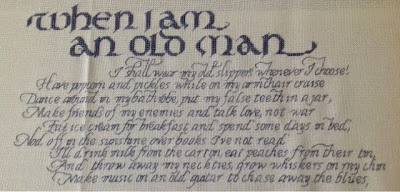 When I am
an old man
I shall wear my old slippers whenever I choose!
Have popcorn and pickles while on my armchair cruise
Dance around in my bathrobe, put my false teeth in a jar,
Make friends of my enemies and talk love, not war
Eat ice cream for breakfast and spend some days in bed,
Nod off in the sunshine over books I've not read
I'll drink milk from the carton eat peaches from their tin,
And throw away my neckties, grow whiskers on my chin
Make music on an old guitar to chase away the blues